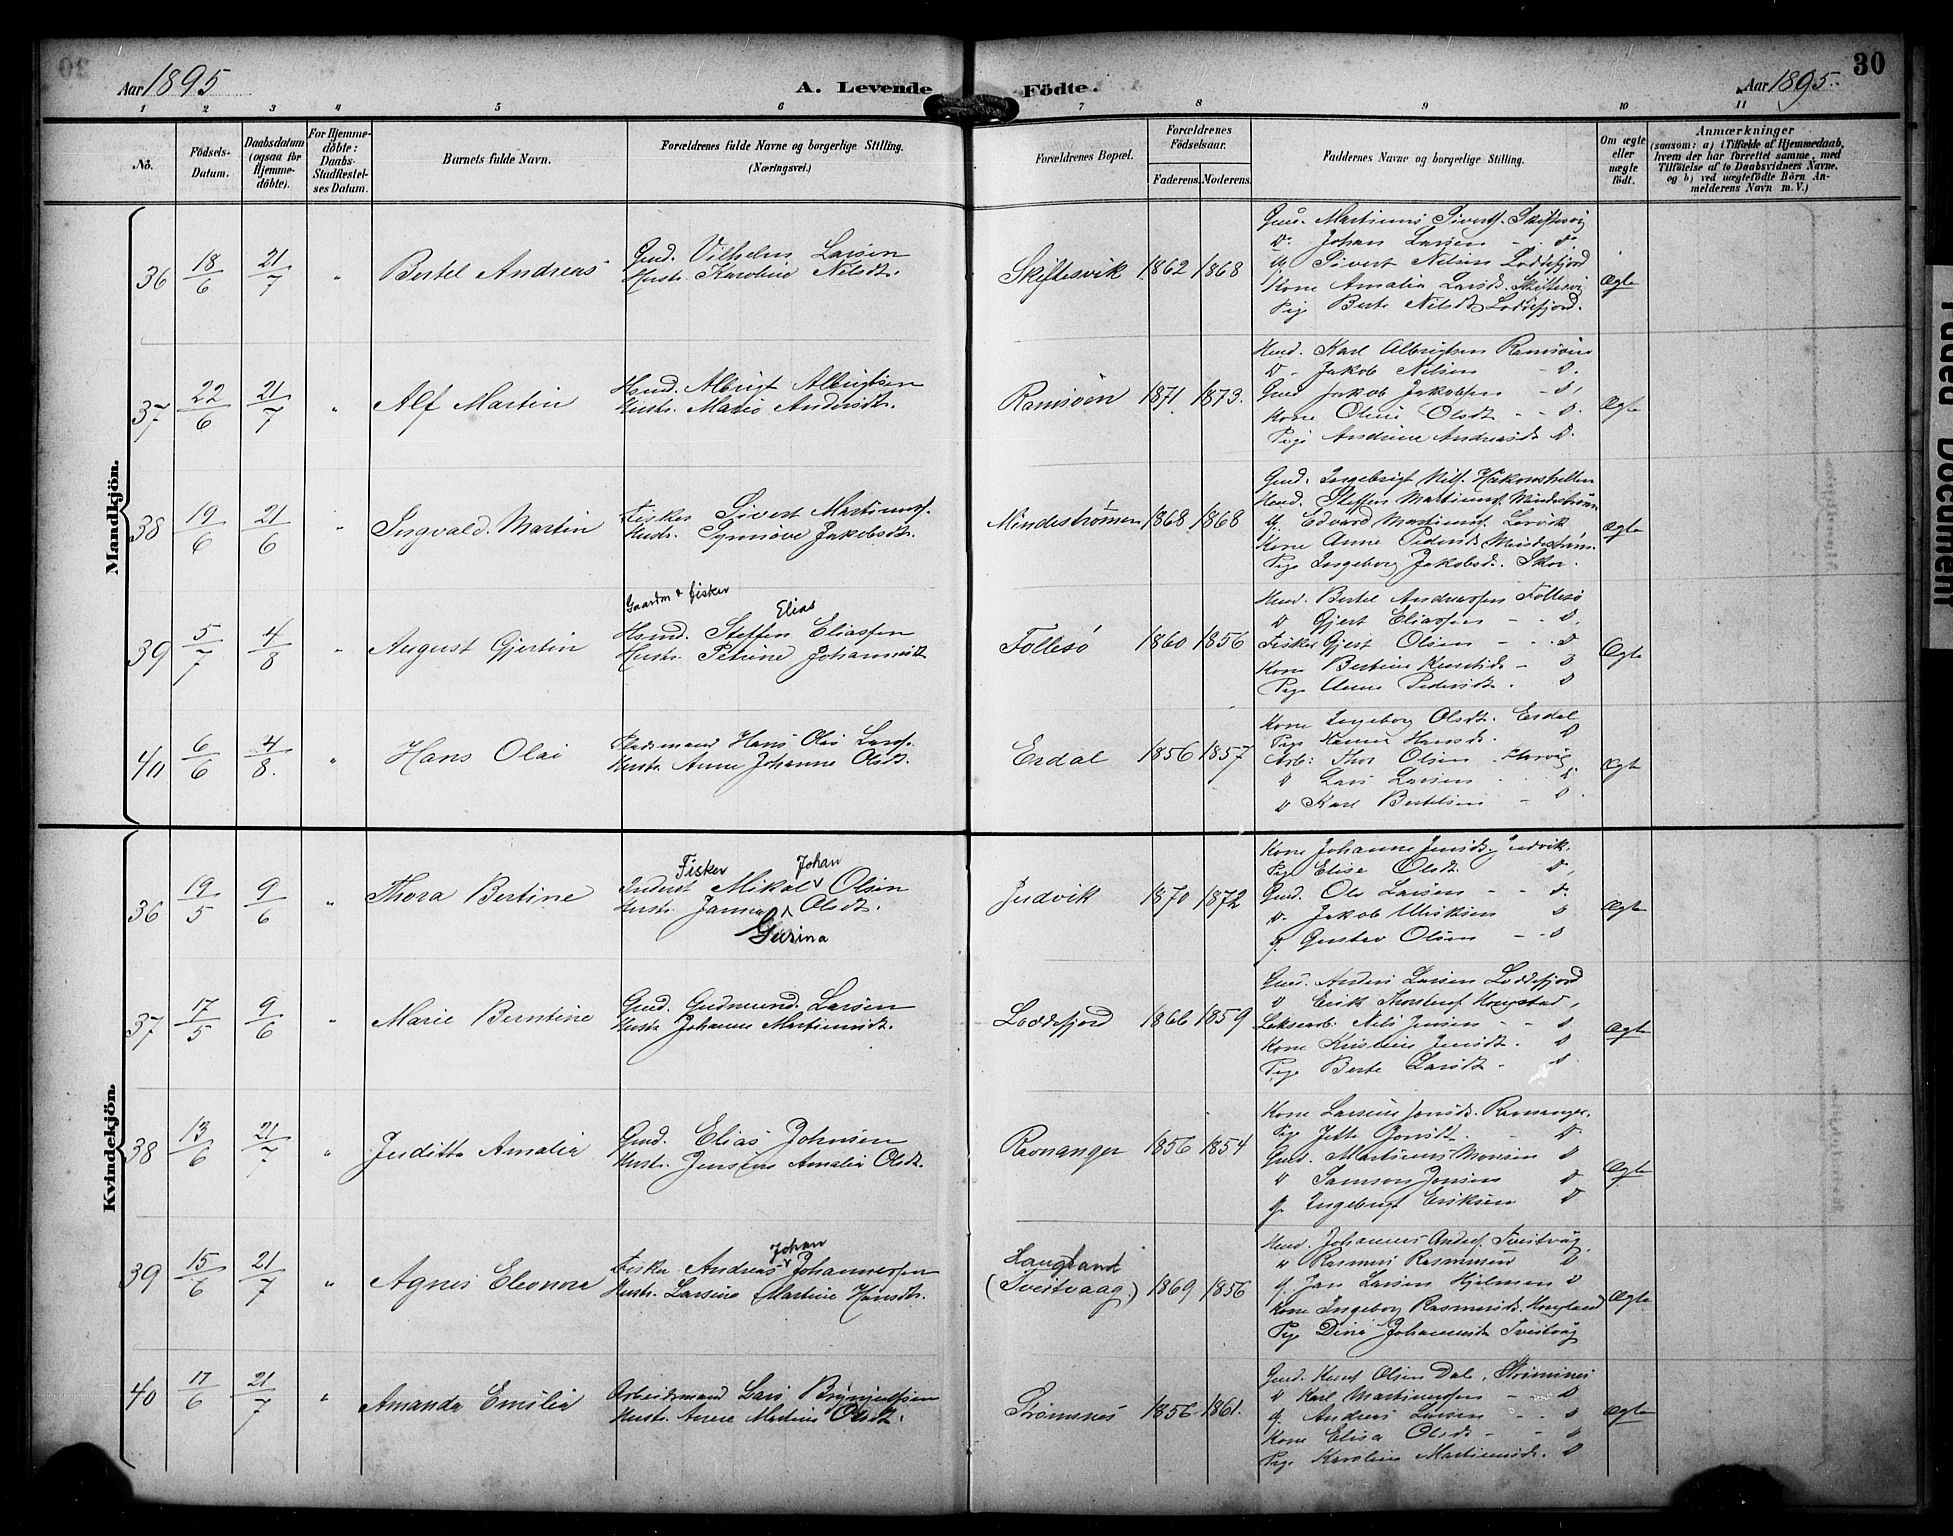 30
Aar 1895
A. Levende Födte.
Aar 1895.
1 2 3 4 5 6 7 8 9 10 11
No.
Födsels-Datum.
Daabsdatum (ogsaa for Hjemmedöbte).
For Hjemmedöbte: Daabs-Stadfæstelses Datum.
Barnets fulde Navn.
Forældrenes fulde Navne og borgerlige Stilling. (Næringsvei.)
Forældrenes Bopæl.
Forældrenes Födselsaar.
Faderens. Moderens.
Faddernes Navne og borgerlige Stilling.
Om ægte eller uægte födt.
Anmærkninger
(saasom: a) i Tilfælde af Hjemmedaab, hvem der har forrettet samme, med Tilföielse af to Daabsvidners Navne, og b) ved uægtefödte Börn Anmelderens Navn m. V.)
Mandkjön.
36 18/6 21/7 " Bertel Andreas
Gmd. Vilhelm Larsen
Hustr. Karoline Nilsdt.
Skiftesvik 1862 1868
Gmd. Martinus Siverts. Skiftesvig
D. Johan Larsen - D.
U. Sivert Nilsen Loddefjord
Kone Amalia Larsd. Skiftesvig
Pige Berte Nilsdt Loddefjord.
Ægte
37 22/6 21/7 " Alf Martin
Hsmd. Albrigt Albrigtsen
Hustr. Marie Andersdt.
Ramsøen 1871 1873.
Hmd. Karl Albrigtsen Ramsøen
D. Jakob Nilsen - D.
Gmd Jakob Jakobsen - D.
Kone Oline Olsdt - D.
Pige Andrine Andreasd. D.
Ægte
38 19/6 21/6 " Ingvald Martin
Fisker Sivert Martinuss.
Hustr. Synnøve Jakobsdt.
Mindestrømen 1868 1868
Gmd. Ingebrigt Nils. Haakonshellen
Hmd. Steffen Martinuss. Mindestrøm
U. Edvard Martinuss. Lervik
Kone Anne Pedersd. Mindestrøm.
Pige Ingeborg Jakobsd. Skor.
Ægte
39 5/7 4/8 " August Gjertin
Gaardm & fisker
Hsmd. Steffen Elias Eliassen
Hustr. Petrine Johannesdt
Follesø 1860 1856
Hmd. Bertel Andreassen Follesø
D Gjert Eliassen - D.
Fisker Gjert Olsen - D
Kone Bertine Knutsd. - D
Pige Anne Pedersdt. D
Ægte
40 6/6 4/8. " Hans Olai
Pladsmand Hans Olai Larss.
Hustr. Anne Johanne Olsdt.
Erdal 1856 1857
Kone Ingeborg Olsdt. Erdal
Pige Hanna Hansd. D
Arb: Thor Olsen
D Lars Larsen - D.
D Karl Bertelsen - D.
Ægte
Kvindekjön.
36 19/5 9/6 " Thora Bertine
Fisker Johan
Inderst Mikal Olsen
Hustr. Janna Olsdt.
Gurina
Judvik 1870 1872
Kone Johanne Jensd. Judvik.
Pige Elise Olsdt. D.
Gmd. Ole Larsen - D.
D. Jakob Ulriksen D
U. Gustav Olsen - D
Ægte
37 17/5 9/6 " Marie Berntine
Gmd. Gudmund Larsen
Hustr Johanne Martinusdt.
Loddefjord 1866 1859
Gmd. Anders Larsen Loddefjord
D Erik Thorlens. Kongstad,
Nils Jensen - D
Kone Kristine Jensdt. D
Pige Berte Larsdt - D
Ægte
38 13/6 21/7. " Juditte Amalia
Gmd. Elias Johnsen
Hustr. Jensine Amalia Olsdt.
Ravnanger 1856 1854
Kone Larsine Jonsd. Ravnanger.
Pige Jette Jonsdt. D.
Gmd. Martinus Monsen D
D Samson Jonsen D
U. Ingebrigt Eriksen D
Ægte
39 15/6 21/7 " Agnes Eleonora
Johan
Fisker Andreas Johannessen
Hustr. Larsine Martine Hansdt.
Haugland
(Tveitvaag.) 1869 1856
Hmd. Johannes Anders. Tveitvåg.
D Rasmus Rasmussen D
U. Jan Larsen Hjelmen D
Kone Ingeborg Rasmusd. Haugland
Pige Dina Johannesdt Tveitvåg
Ægte
40 17/6 21/7 " Amanda Emilia
Arbeidsmand Lars Brynjulfsen
Hustr. Anne Martine Olsdt.
Strømnes 1856 1861.
Gmd. Knut Olsen Dal, Strømnes
D Karl Martinussen - D
U. Andreas Larsen - D
Kone Elisa Olsd. - D
Pige Karolina Martinusdt. D
Ægte
Document